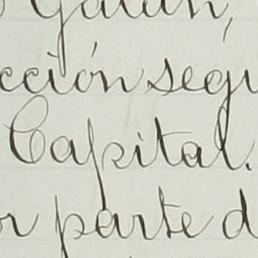 Galan,
cción segu
Capital.
r parte d